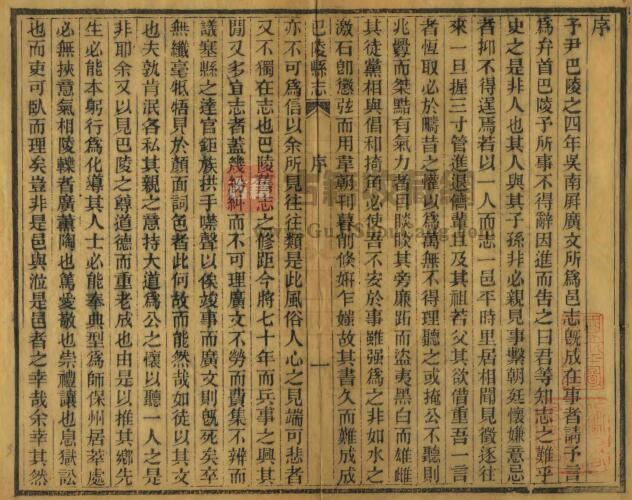 序
予尹巴陵之四年吳南屏廣文所為邑志既成在事者請予言
為弁首巴陵予所事不得辭因進而告之曰君等知志之難乎
史之是非人也其人與其子孫非必親見事繫朝廷懷嫌意忌
者抑不得逞焉若以一人而志一邑平時里居相聞見徵逐往
來一旦握三寸管進退儕輩且及其祖若父其欲借重吾一言
者恆取必於疇昔之懽以為萬無不得理聽之或掩公不聽則
兆釁而桀黠有氣力者日睒睒其旁廉跖而盜夷黑白而雄雌
其徒黨相與倡和掎角必使吾不安於事雖强為之非如水之
激石卽懲弦而用韋朝刊暮削倏妍乍媸故其書久而難成成
巴陵縣志 序 一
亦不可為信以余所見往往類是此風俗人心之見端可悲者
又不獨在志也巴陵舊志之修距今將七十年而兵事之興其
間又多宜志者蓋幾紛糾而不可理廣文不勞而費集不辨而
議塞縣之達官鉅族拱手噤聲以俟竣事而廣文則既死矣卒
無纖毫牴牾見於顏面詞色者此何故而能然哉如徒以其文
也夫孰肯泯各私其親之意持大道為公之懷以聽一人之是
非耶余又以見巴陵之尊道德而重老成也由是以推其鄉先
生必能本躬行為化導其人士必能奉典型為師保州居萃處
必無挾意氣相陵轢者廣薰陶也篤愛敬也崇禮讓也息獄訟
也而吏可臥而理矣豈非是邑與涖是邑者之幸哉余幸其然